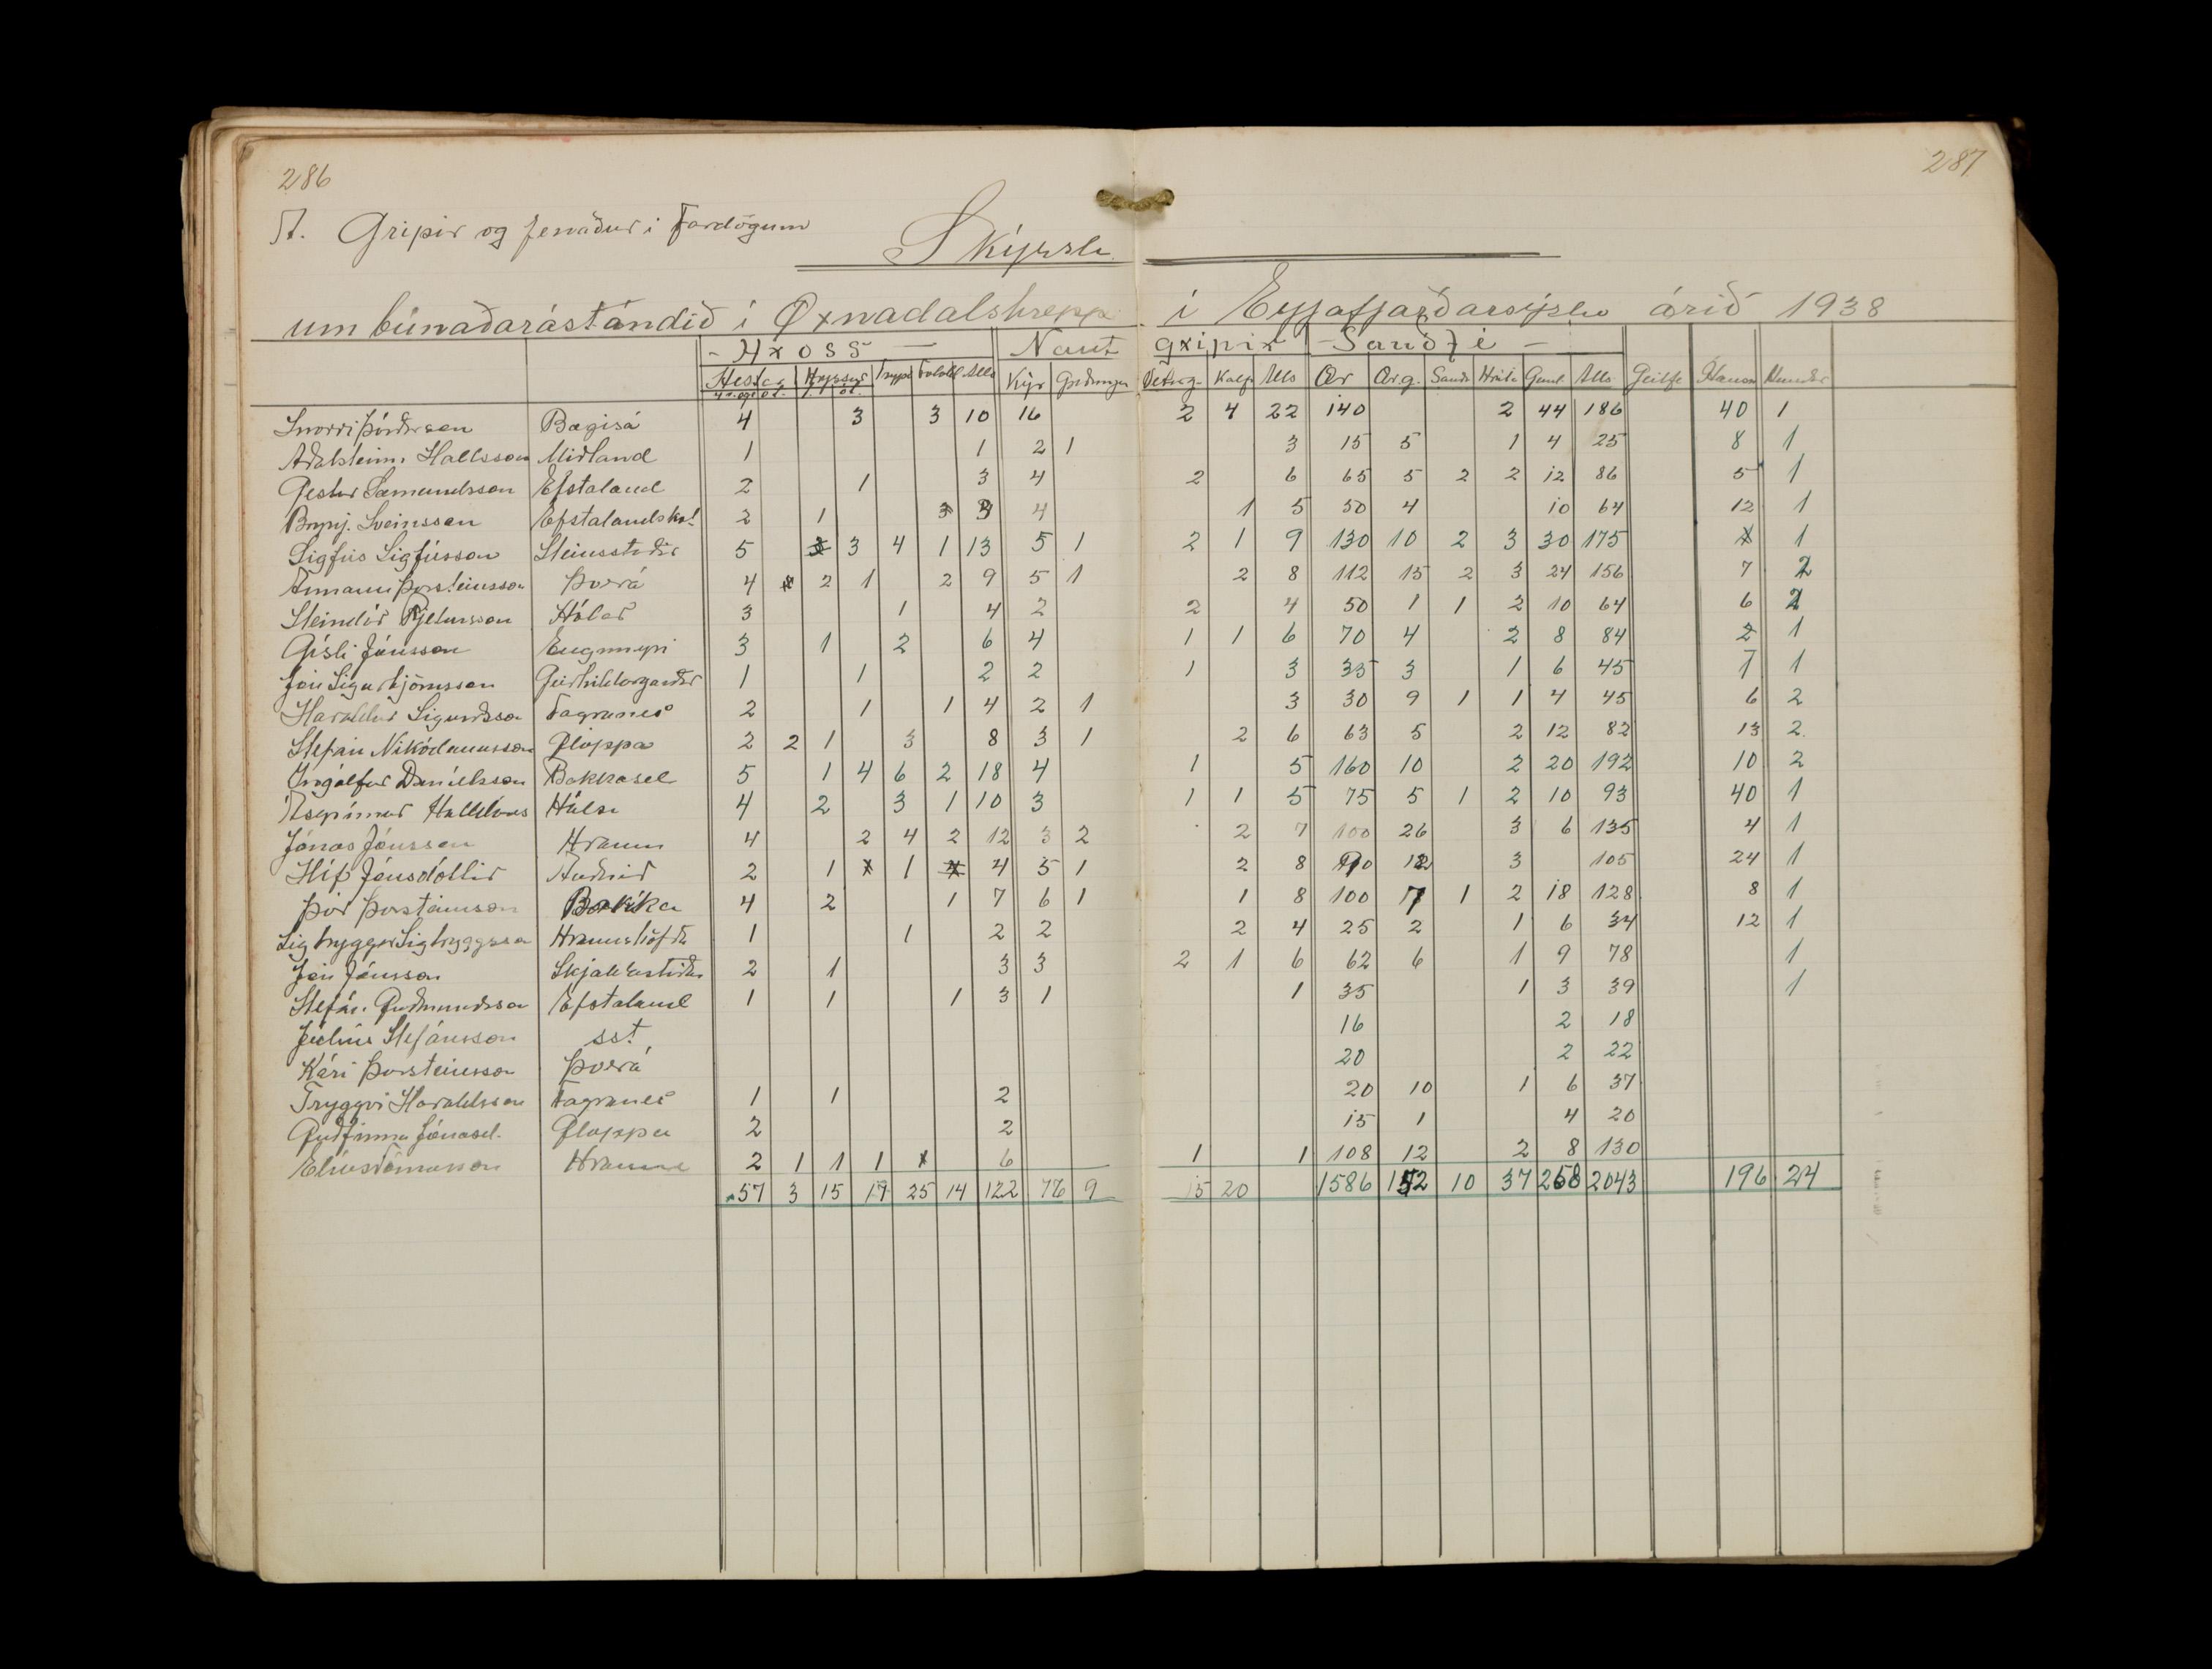 286
287
A. Gripir og fenaður í Fardögum
Skýrsla
um búnaðarástándið í Öxnadalshrepp í Eyjafjarðarsýslu árið 1938
- Hross - Naut gripir - Sauðfé -
Hestar Hryssur Tryppi Folöld Alls Kýr Griðungar Vetrug. Kálfar Alls Ær Ær.g. Sauð. Hrút. Geml. Alls Geitfé Hænsn Hundar
Snorri Þórðarson Bægisá 4 3 3 10 16 2 4 22 140 2 44 186 40 1
Aðalsteinn Hallsson Miðland 1 1 2 1 3 15 5 1 4 25 8 1
Gestur Sæmundsson Efstaland 2 1 3 4 2 6 65 5 2 2 12 86 5 1
Brynj. Sveinsson Efstalandskot 2 1 3 4 1 5 50 4 10 64 12 1
Sigfús Sigfússon Steinsstaðir 5 3 4 1 13 5 1 2 1 9 130 10 2 3 30 175 1
Ármann Þorsteinsson Þverá 4 2 1 2 9 5 1 2 8 112 15 2 3 24 156 7 2
Steindór Pjetursson Hólar 3 1 4 2 2 4 50 1 1 2 10 64 6 2
Gísli Jónsson Engimýri 3 1 2 6 4 1 1 6 70 4 2 8 84 2 1
Jón Sigurbjörnsson Geirhildargarðar 1 1 2 2 1 3 35 3 1 6 45 7 1
Haraldur Sigurðsson Fagranes 2 1 1 4 2 1 3 30 9 1 1 4 45 6 2
Stefán Nikódemusson Gloppa 2 2 1 3 8 3 1 2 6 63 5 2 12 82 13 2
Ingólfur Daníelsson Bakkasel 5 1 4 6 2 18 4 1 5 160 10 2 20 192 10 2
Ásgrímur Halldórss Háls 4 2 3 1 10 3 1 1 5 75 5 1 2 10 93 40 1
Jónas Jónsson Hraun 4 2 4 2 12 3 2 2 7 100 26 3 6 135 4 1
Hlíf Jónsdóttir Auðnir 2 1 1 4 5 1 2 8 90 12 3 105 24 1
Þór Þorsteinsson Bakka 4 2 1 7 6 1 1 8 100 7 1 2 18 128 8 1
Sigtryggur Sigtryggsson Hraunshöfða 1 1 2 2 2 4 25 2 1 6 34 12 1
Jón Jónsson Skjaldarstaðir 2 1 3 3 2 1 6 62 6 1 9 78 1
Stefán Guðmundsson Efstaland 1 1 1 3 1 1 35 1 3 39 1
Júlíus Stefánsson sst 16 2 18
Kári Þorsteinsson Þverá 20 2 22
Tryggvi Haraldsson Fagranes 1 1 2 20 10 1 6 37
Guðfinna Jónasd. Gloppu 2 2 15 1 4 20
Elías Tómasson Hraune 2 1 1 1 6 1 1 108 12 2 8 130
57 3 15 19 25 14 122 76 9 15 20 1586 152 10 37 258 2043 196 24